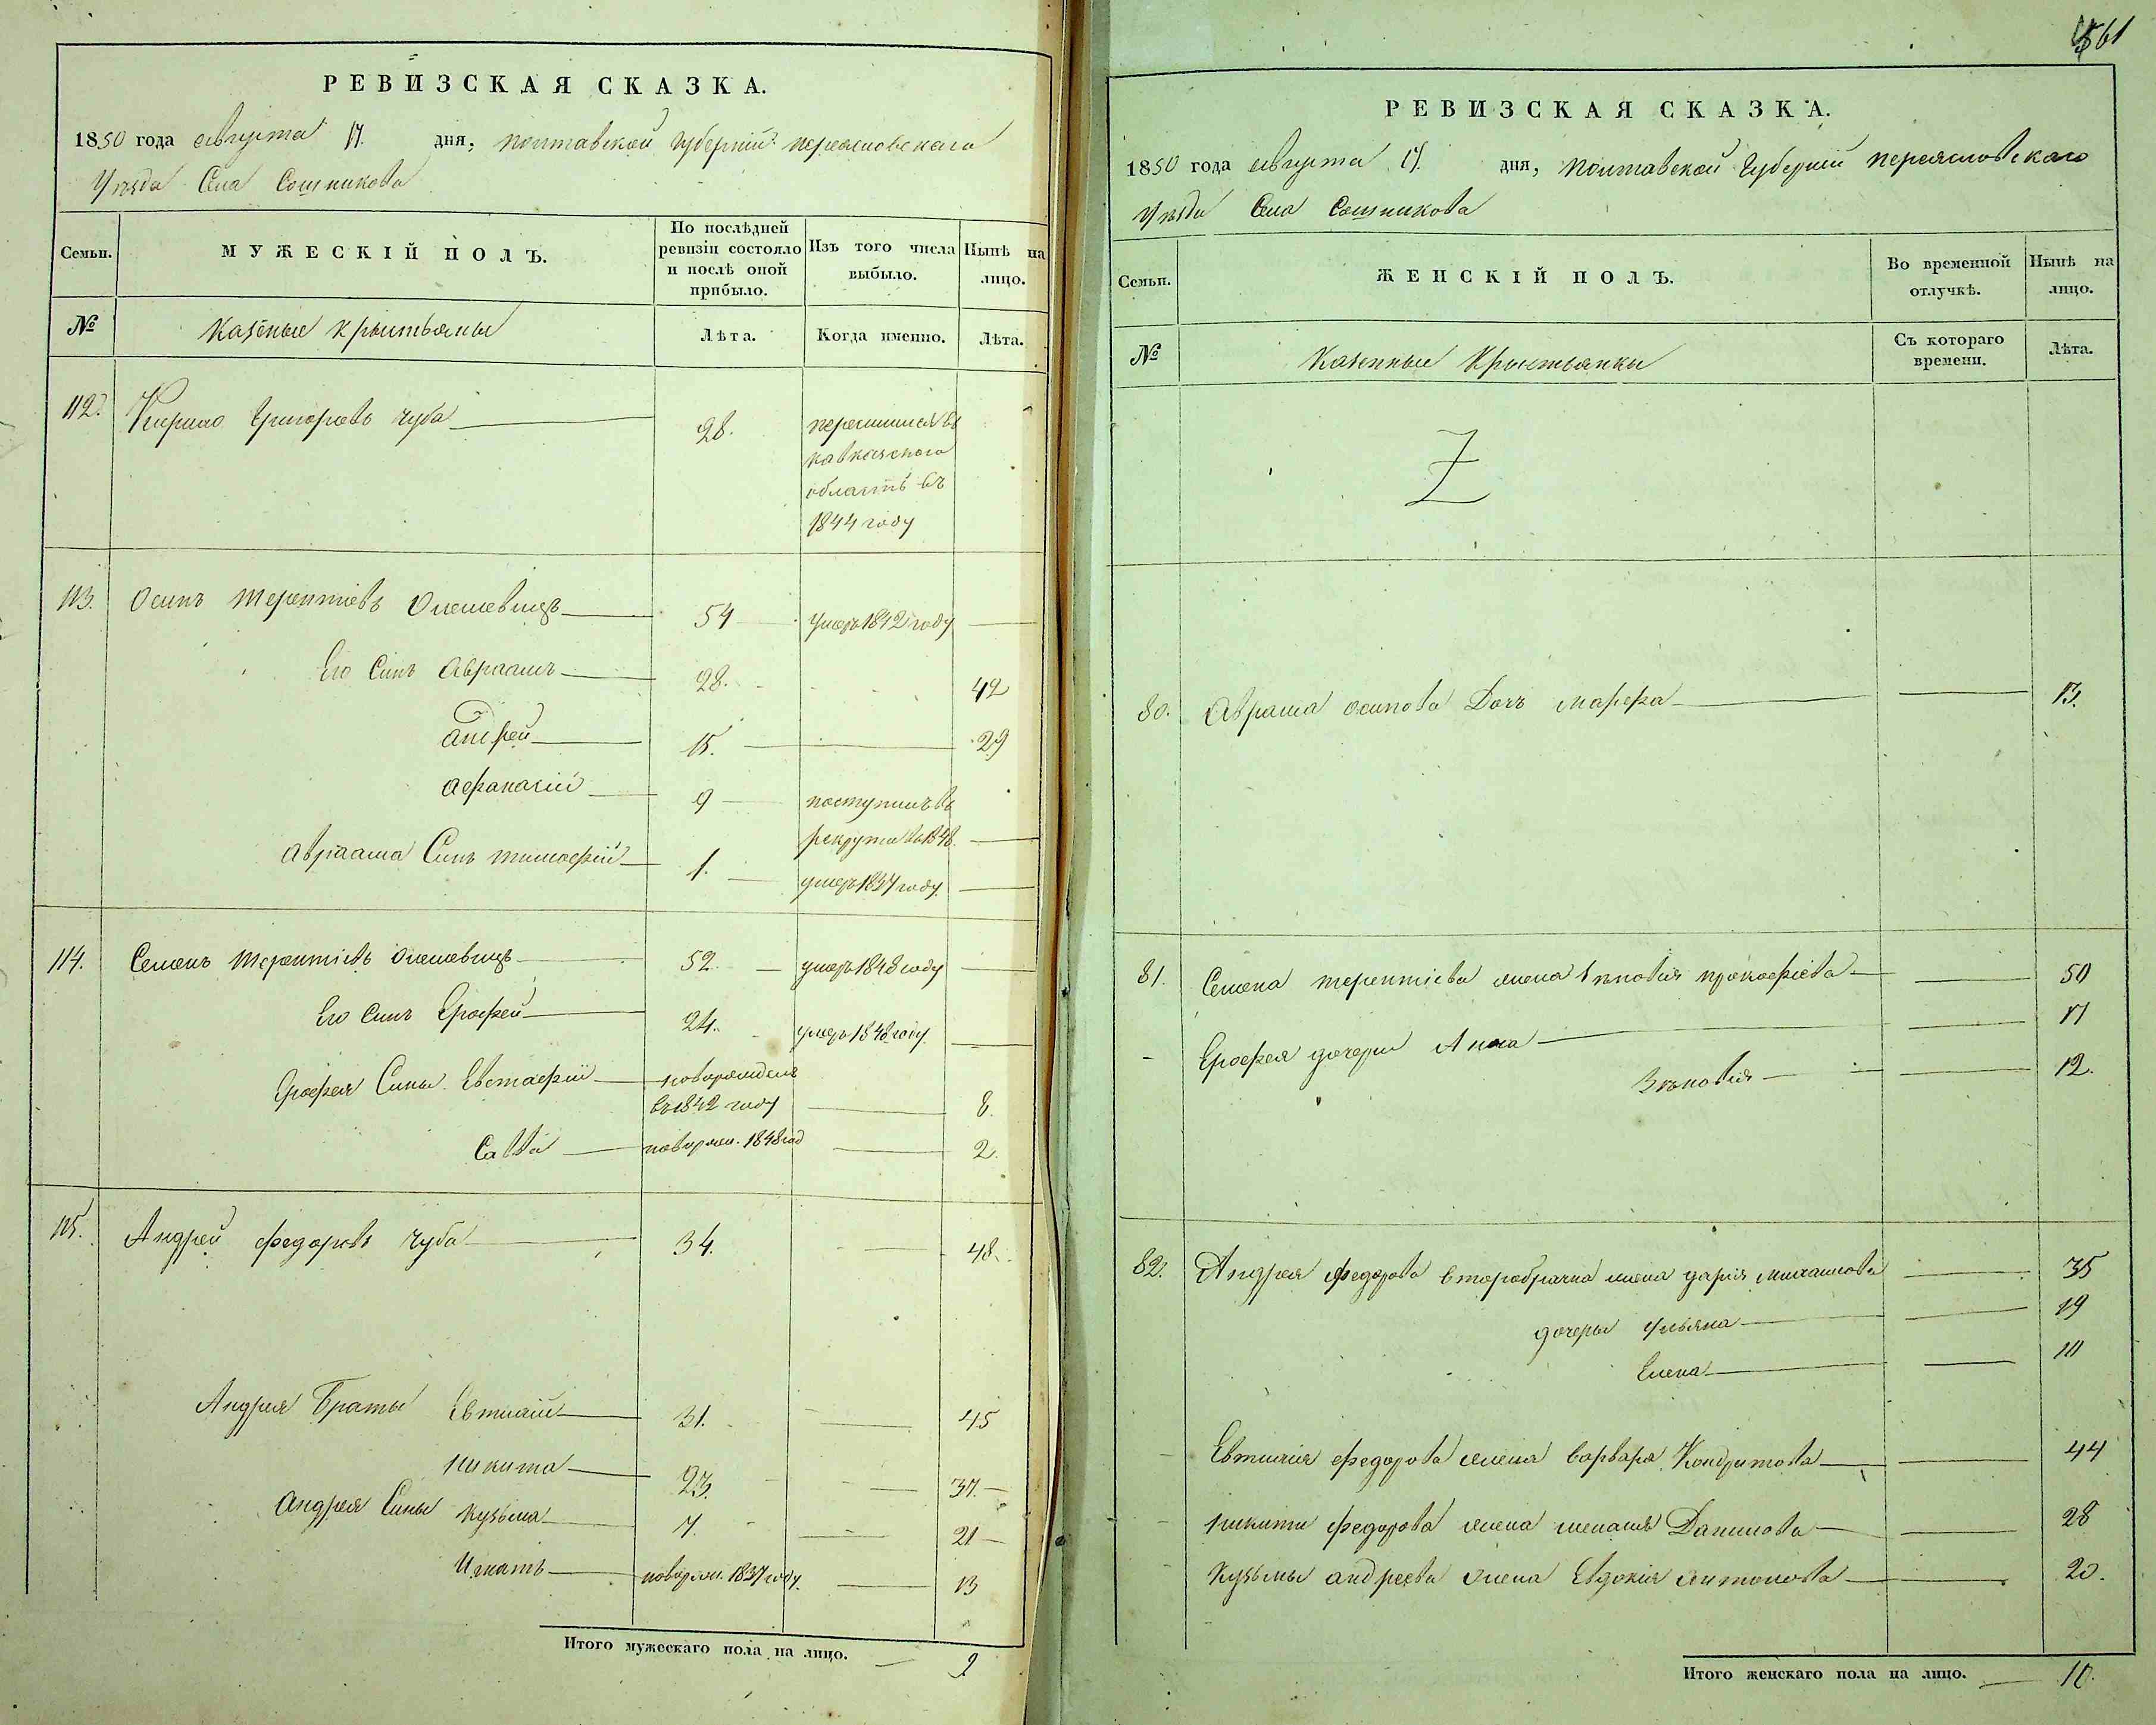 РЕВИЗСКАЯ СКАЗКА.
1850 года августа 17. дня, Полтавской Губерніи Переясловскаго
Уѣзда Села Сошникова
Семьи.
МУЖЕСКІЙ ПОЛЪ.
По послѣдней
ревизіи состояло
и послѣ оной
прибыло.
Изъ того числа
выбыло.
Нынѣ на
лицо.
№ казеные крестьяны Лѣта. Когда именно. Лѣта.
112. Кирило Григоровъ чуба 28. переселился въ
кавказского
область въ
1844 году
113. Осипъ терентіевъ 54 умеръ 1842 году
Его Синъ Авраамъ 28. 42
андрей 15. 29
афанасій 9 поступилъ въ
рекруты въ 1848.
авраама Синъ тимофій 1. умеръ 1837 году
114. Семенъ терентіевъ 52. умеръ 1848 году
Его синъ Ерофей 24. умеръ 1848 году
Ерофея Сины Евстафій новорожденъ
въ 1842 году 8.
Савва новорож. 1848 год 2.
115. Андрей федоровъ чуба 34. 48.
Андрея Браты Евтихій 31. 45
никита 23. 37.
андрея Сины кузьма 7. 21
Игнатъ новорож. 1837 году. 13
Итого мужескаго пола на лицо. 9
561
РЕВИЗСКАЯ СКАЗКА.
1850 года августа 17. дня, Полтавской Губерній переясловскаго
Уѣзда Села Сошникова
Семьи.
ЖЕНСКІЙ ПОЛЪ.
Во временной
отлучкѣ.
Нынѣ на
лицо.
№ Казенные Крестьянки Съ котораго
времени. Лѣта.
Z
80. Авраама осипова Дочъ марфа 13.
81. Семена терентіева жена зѣновія прокофіева 50
Ерофея дочери Анна 17
Зѣновія 12.
82. Андрея федорова второбрачна жена дарія михаилова 35
дочеры ульяна 19
Елена 11
Евтихія федорова жена варвара Кондратова 44
никиты федорова жена Данилова 28
кузьмы андреева жена Евдокія антонова 20.
Итого женскаго пола на лицо. 10.